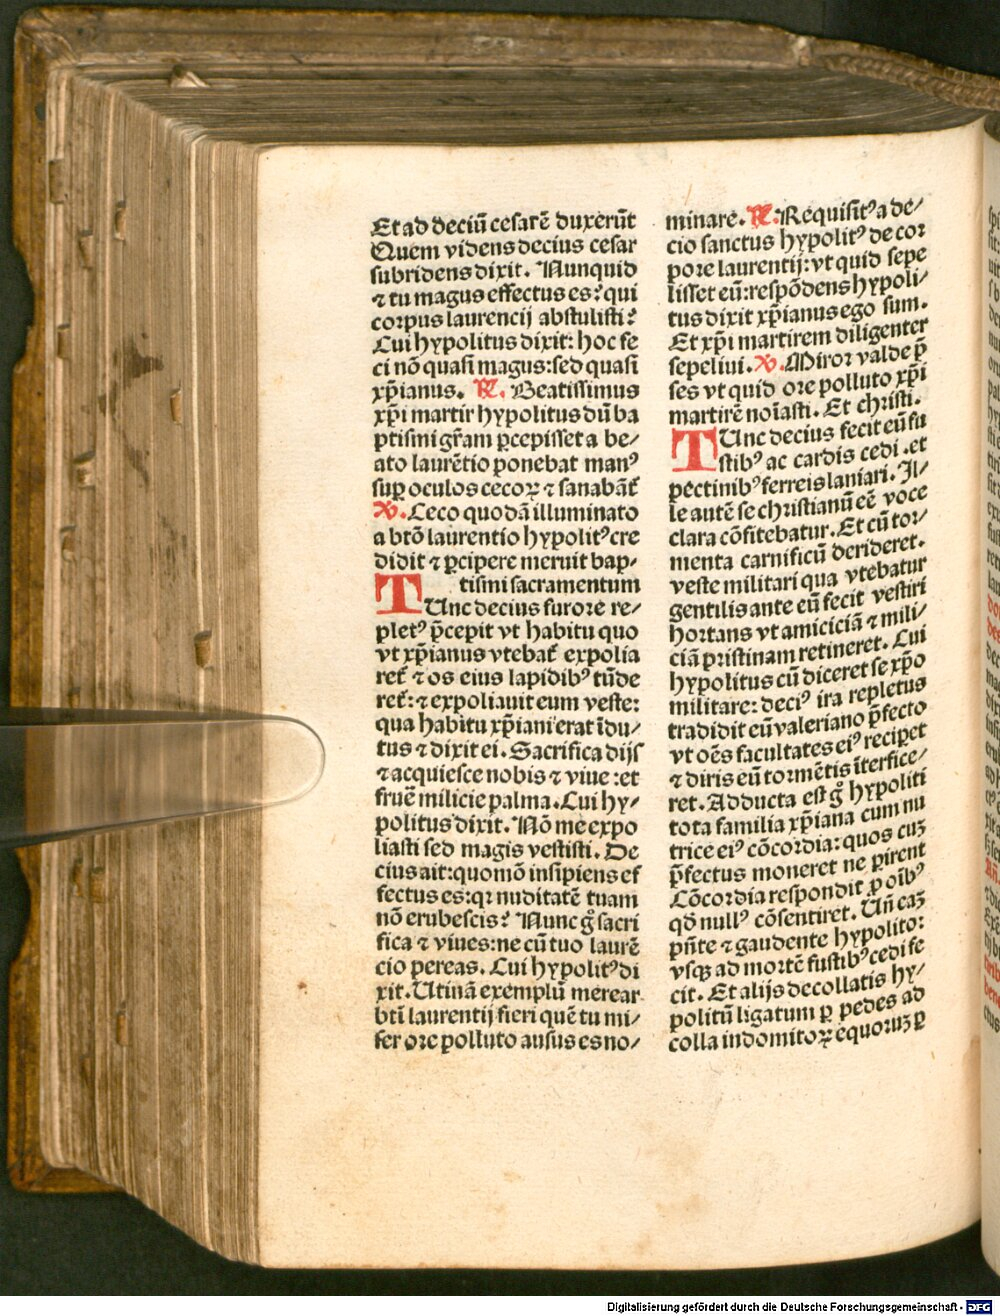 Et ad deciū cesarē duxerūt
Quem videns decius cesar
subridens dixit. Nunquid
⁊ tu magus effectus es? qui
corpus laurencij abstulisti?
Cui hypolitus dixit: hoc fe
ci nō quasi magus: sed quasi
xp̄ianus. ℟. Beatissimus
xp̄i martir hypolitus dū ba
ptismi gr̄am ꝑcepisset a be⸗
ato laurētio ponebat manꝰ
suꝑ oculos cecoꝝ ⁊ sanabāt̄
℣. Ceco quodā illuminato
a btō laurentio hypolitꝰ cre
didit ⁊ ꝑcipere meruit bap⸗
tismi sacramentum
Tunc decius furore re⸗
pletꝰ p̄cepit vt habitu quo
vt xp̄ianus vtebat̄ expolia
ret̄ ⁊ os eius lapidibꝰ tūde
ret̄: ⁊ expoliauit eum veste:
qua habitu xp̄iani erat īdu⸗
tus ⁊ dixit ei. Sacrifica dijs
⁊ acquiesce nobis ⁊ viue: et
fruē milicie palma. Cui hy⸗
politus dixit. Nō me expo
liasti sed magis vestisti. De
cius ait: quomō insipiens ef
fectus es: qꝛ nuditatē tuam
nō erubescis? Nunc g̊ sacri
fica ⁊ viues: ne cū tuo laurē
cio pereas. Cui hypolitꝰ di
xit. Utinā exemplū merear
btī laurentij fieri quē tu mi⸗
ser ore polluto ausus es no⸗
minare. ℟. Requisitꝰ a de⸗
cio sanctus hypolitꝰ de cor
pore laurentij: vt quid sepe
lisset eū: respōdens hypoli⸗
tus dixit xp̄ianus ego sum.
Et xp̄i martirem diligenter
sepeliui. ℣. Miror valde p̄
ses vt quid ore polluto xp̄i
martirē noīasti. Et christi.
Tunc decius fecit eū fu
stibꝰ ac cardis cedi. et
pectinibꝰ ferreis laniari. Il⸗
le autē se christianū eē voce
clara cōfitebatur. Et cū tor⸗
menta carnificū derideret.
veste militari qua vtebatur
gentilis ante eū fecit vestiri
hortans vt amiciciā ⁊ mili⸗
ciā pristinam retineret. Cui
hypolitus cū diceret se xp̄o
militare: deciꝰ ira repletus
tradidit eū valeriano p̄fecto
vt oēs facultates eiꝰ reciꝑet
⁊ diris eū tormētis īterfice⸗
ret. Adducta est g̊ hypoliti
tota familia xp̄iana cum nu
trice eiꝰ cōcordia: quos cuꝫ
p̄fectus moneret ne ꝑirent
Cōcordia respondit ꝓ oībꝰ
qd̄ nullꝰ cōsentiret. Un̄ eaꝫ
pn̄te ⁊ gaudente hypolito:
vsqꝫ ad mortē fustibꝰ cedi fe
cit. Et alijs decollatis hy⸗
politū ligatum ꝑ pedes ad
colla indomitoꝝ equoruꝫ ꝑ
Digitalisierung gefördert durch die Deutsche Forschungsgemeinschaft - DFG